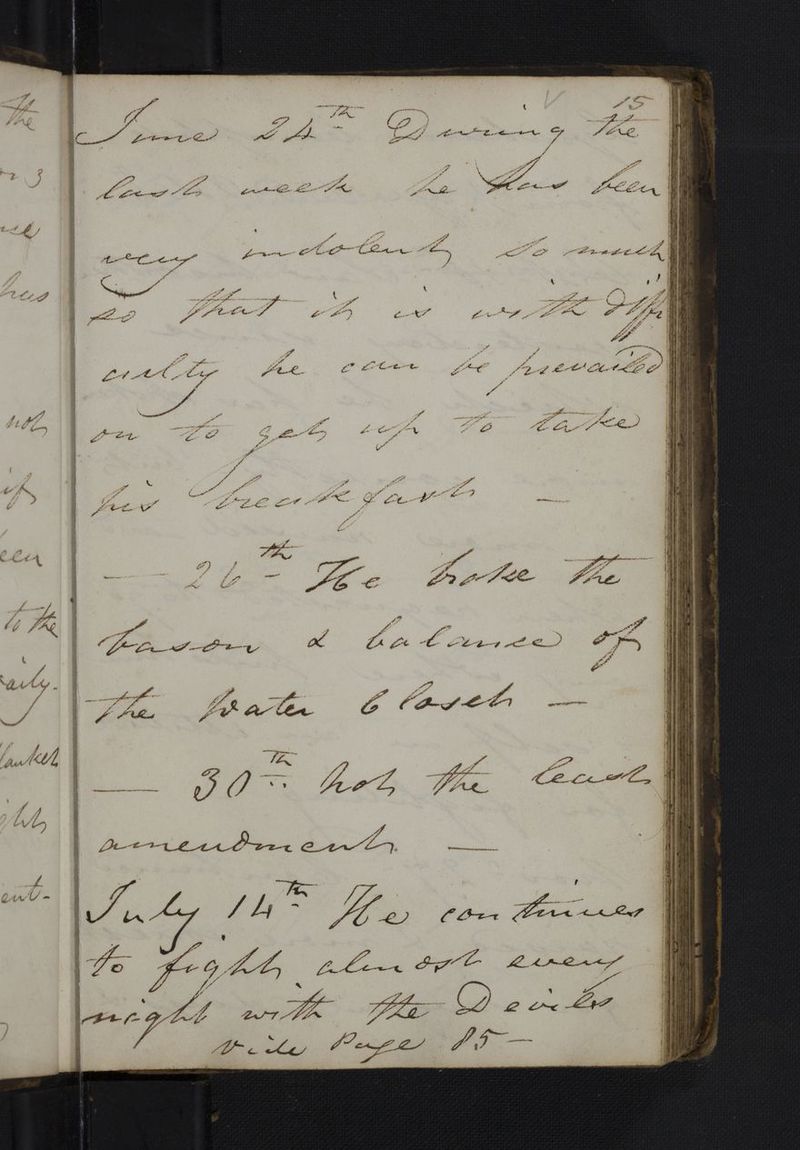 the
on 3
has
not
if
een
to the
aily.
lanket
ght
ent-
15
June 24th During the
last week he has been
very indolent so much
so that it is with diffi
culty he can be prevailed
on to get up to take
his breakfast —
— 26th He broke the
bason & balance of
the Water Closet —
— 30th Not the least
amendment —
July 14th He continues
to fight almost every
night with the Devils
Vide Page 85 —